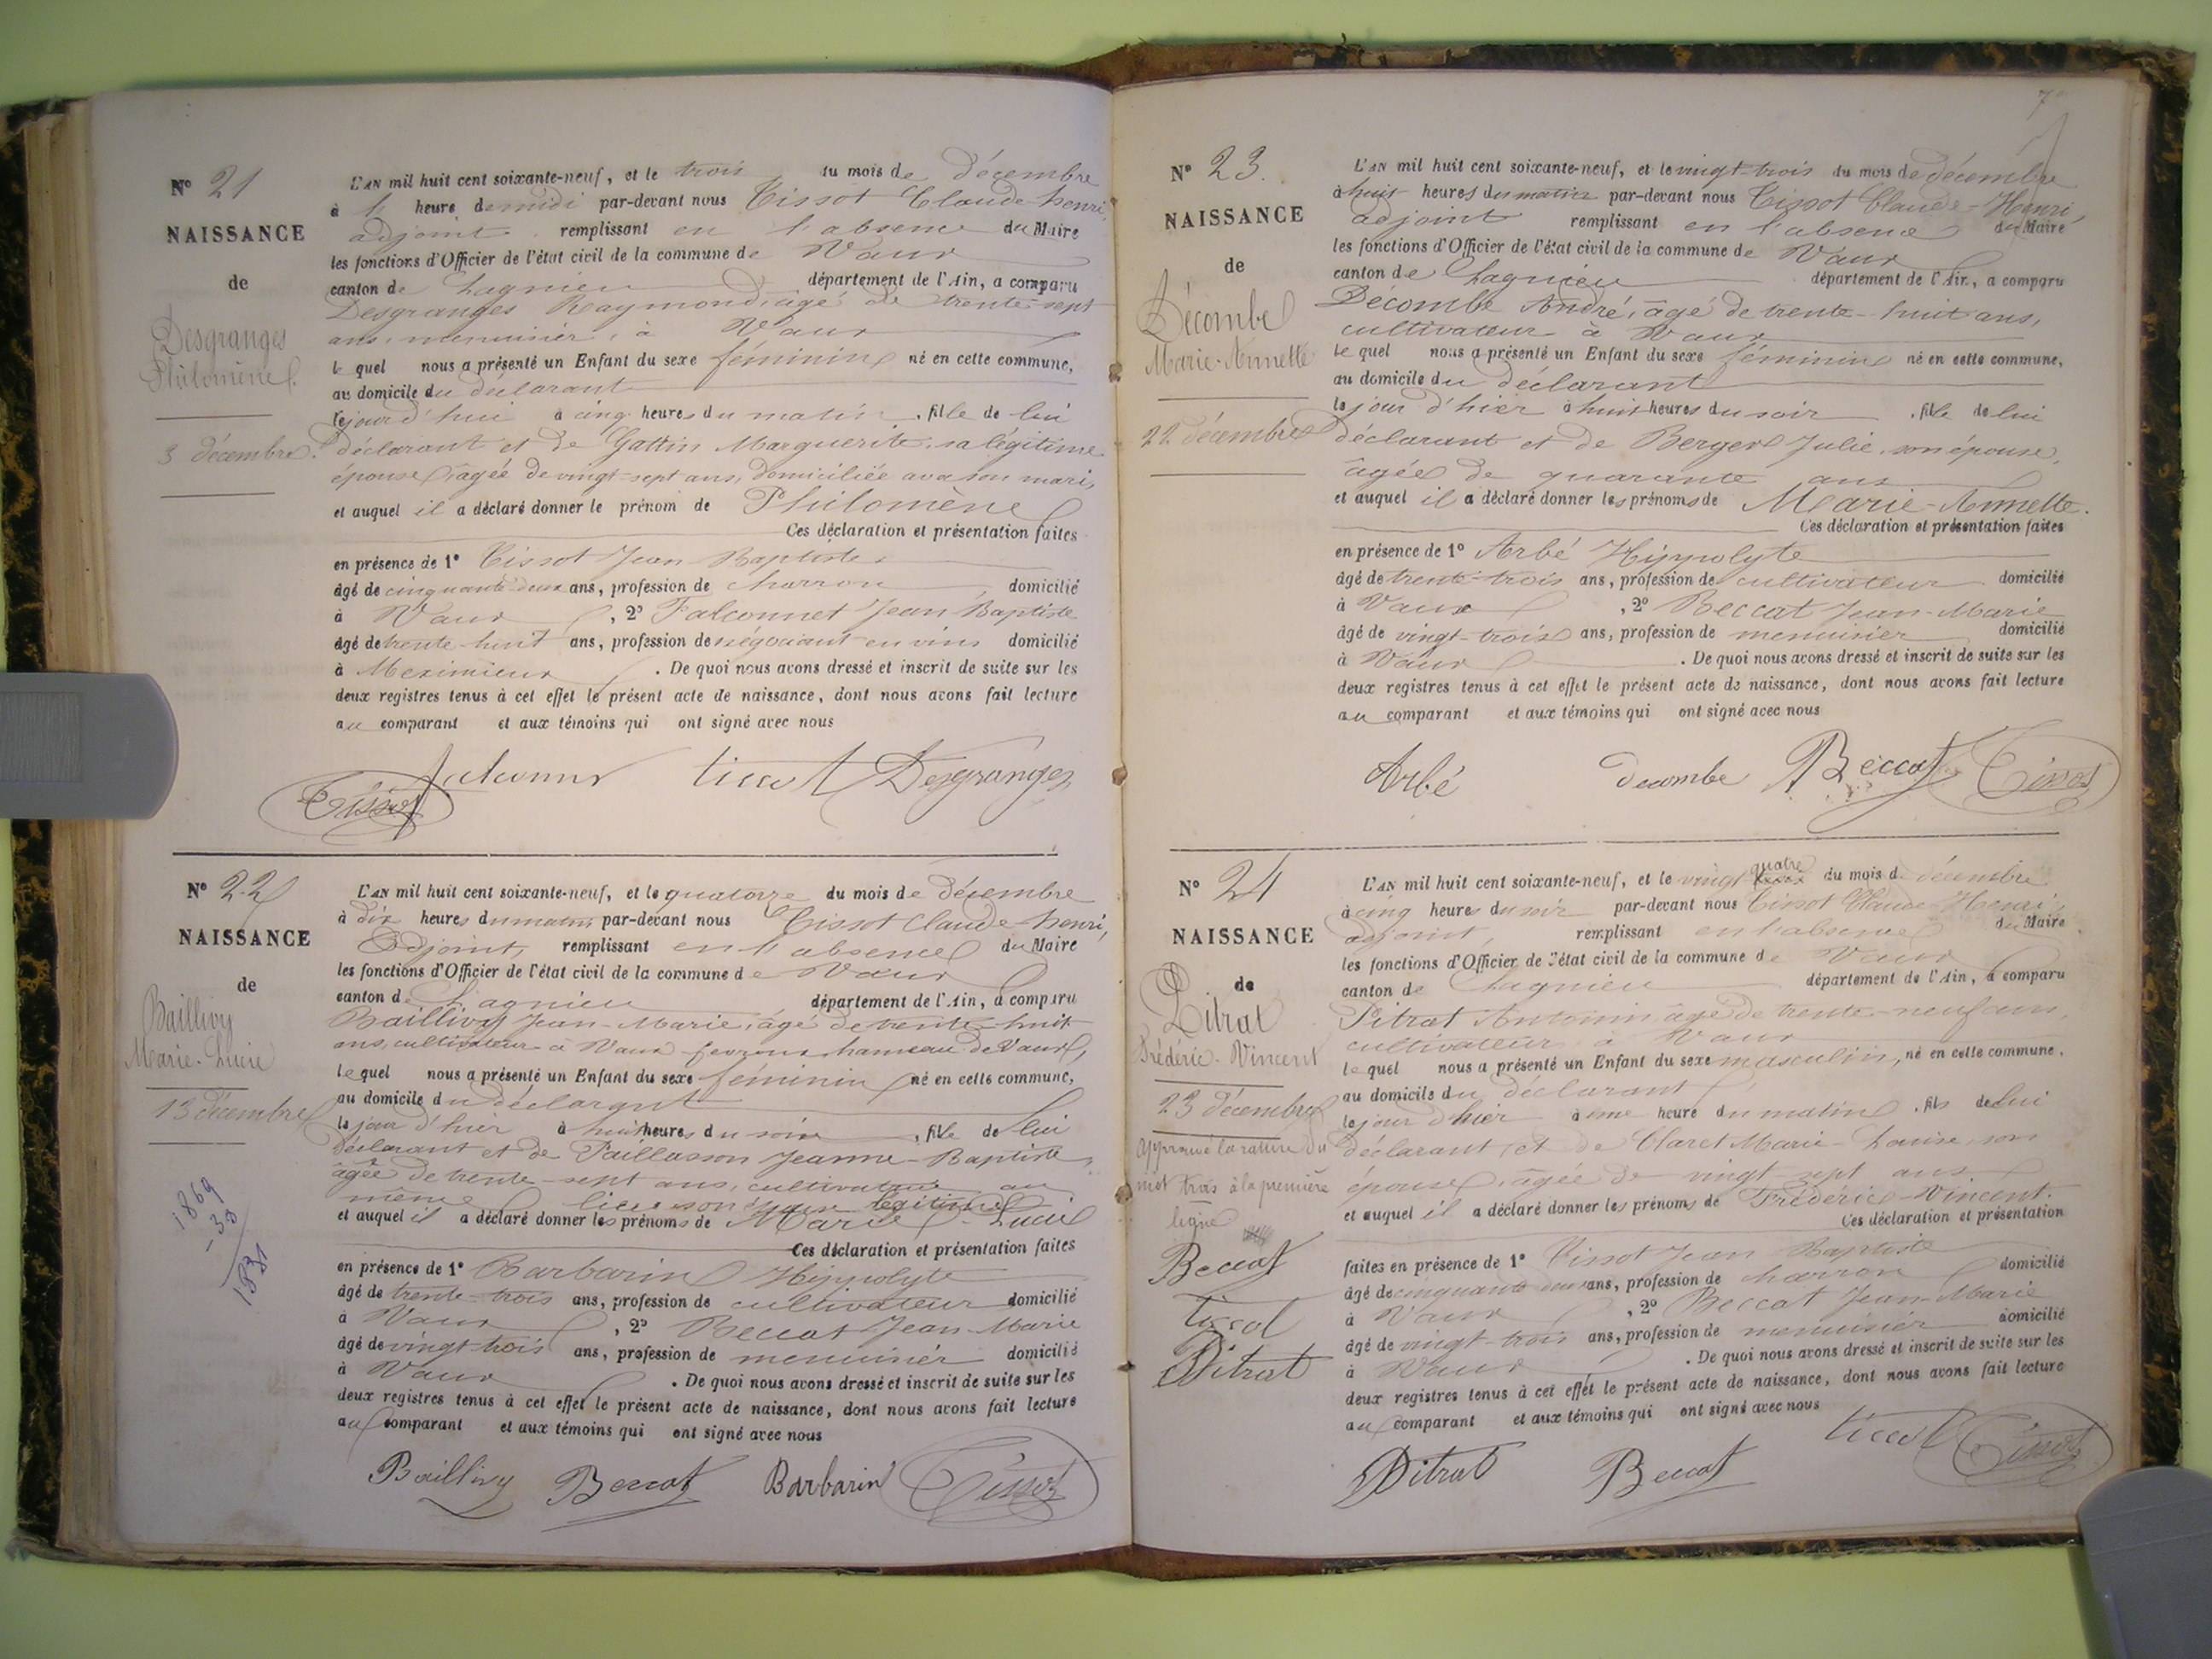 N° 21
NAISSANCE
de
Desgranges
Philomène.
3 décembre.
L'AN mil huit cent soixante-neuf, et le trois du mois de décembre
à 1 heure de midi par-devant nous Tissot Claude-henri,
adjoint remplissant en l'absence du Maire
les fonctions d'Officier de l'état civil de la commune de Vaux
canton de Lagnieu département de l'Ain, a comparu
Desgranges Raymond, âgé de trente-sept
ans, menuisier, à Vaux
lequel nous a présenté un Enfant du sexe féminin né en cette commune,
au domicile du déclarant
lejourd'hui à cinq heures du matin, fille de lui
déclarant et de Gattin Marguerite, sa légitime
épouse, âgée de vingt-sept ans, domiciliée avec son mari,
et auquel il a déclaré donner le prénom de Philomène
Ces déclaration et présentation faites
en présence de 1° Tissot Jean Baptiste,
âgé de cinquante deux ans, profession de charron, domicilié
à Vaux, 2° Falconnet Jean Baptiste
âgé de trente huit ans, profession de négociant en vins domicilié
à Meximieux. De quoi nous avons dressé et inscrit de suite sur les
deux registres tenus à cet effet le présent acte de naissance, dont nous avons fait lecture
au comparant et aux témoins qui ont signé avec nous
tissot Desgranges
Tissot
N° 22
NAISSANCE
de
Baillivy
Marie-Lucie
13 décembre
1869
L'AN mil huit cent soixante-neuf, et le quatorze du mois de décembre
à dix heures du matin par-devant nous Tissot Claude-henri,
Adjoint, remplissant en l'absence du Maire
les fonctions d'Officier de l'état civil de la commune de Vaux
canton de Lagnieu département de l'Ain, a comparu
Baillivy Jean-Marie, âgé de trente-huit
ans, cultivateur à Vaux fevroux hameau de Vaux,
lequel nous a présenté un Enfant du sexe féminin né en cette commune,
au domicile du déclarant
le jour d'hier à huit heures du soir, fille de lui
déclarant et de Paillasson Jeanne-Baptiste,
âgée de trente-sept ans, cultivatrice au
même lieu son épouse légitime
et auquel il a déclaré donner les prénoms de Marie-Lucie
Ces déclaration et présentation faites
en présence de 1° Barbarin Hippolyte
âgé de trente-trois ans, profession de cultivateur domicilié
à Vaux, 2° Beccat Jean-Marie
âgé de vingt-trois ans, profession de menuisier domicilié
à Vaux. De quoi nous avons dressé et inscrit de suite sur les
deux registres tenus à cet effet le présent acte de naissance, dont nous avons fait lecture
au comparant et aux témoins qui ont signé avec nous
Baillivy Beccat Barbarin Tissot
7
N° 23.
NAISSANCE
de
Décombe
Marie-Annette
22 décembre
L'AN mil huit cent soixante-neuf, et le vingt-trois du mois de décembre
à huit heures du matin par-devant nous Tissot Claude-Henri,
adjoint remplissant en l'absence du Maire
les fonctions d'Officier de l'état civil de la commune de Vaux
canton de Lagnieu département de l'Ain, a comparu
Décombe André, âgé de trente-huit ans,
cultivateur à Vaux
lequel nous a présenté un Enfant du sexe féminin né en cette commune,
au domicile du déclarant
le jour d'hier à huit heures du soir, fille de lui
déclarant et de Berger Julie, son épouse,
âgée de quarante ans
et auquel il a déclaré donner les prénoms de Marie-Annette.
Ces déclaration et présentation faites
en présence de 1° Arbé Hippolyte
âgé de trente-trois ans, profession de cultivateur domicilié
à Vaux, 2° Beccat Jean-Marie
âgé de vingt-trois ans, profession de menuisier domicilié
à Vaux. De quoi nous avons dressé et inscrit de suite sur les
deux registres tenus à cet effet le présent acte de naissance, dont nous avons fait lecture
au comparant et aux témoins qui ont signé avec nous
Arbé Decombe Beccat Tissot
N° 24
NAISSANCE
de
Pitrat
Frédéric-Vincent
23 décembre
approuvé la rature du
mot trois à la première
ligne
Beccat
tissot
Pitrat
L'AN mil huit cent soixante-neuf, et le vingt quatre du mois de décembre
à cinq heures du soir par-devant nous Tissot Claude Henri,
adjoint, remplissant en l'absence du Maire
les fonctions d'Officier de l'état civil de la commune de Vaux
canton de Lagnieu département de l'Ain, a comparu
Pitrat Antonin âgé de trente-neuf ans,
cultivateur à Vaux
lequel nous a présenté un Enfant du sexe masculin, né en cette commune,
au domicile du déclarant
le jour d'hier à une heure du matin, fils de lui
déclarant et de Claret Marie-Louise, son
épouse, âgée de vingt sept ans
et auquel il a déclaré donner les prénoms de Frédéric-Vincent.
Ces déclaration et présentation
faites en présence de 1° Tissot Jean Baptiste
âgé de cinquante deux ans, profession de charron domicilié
à Vaux, 2° Beccat Jean-Marie
âgé de vingt-trois ans, profession de menuisier domicilié
à Vaux. De quoi nous avons dressé et inscrit de suite sur les
deux registres tenus à cet effet le présent acte de naissance, dont nous avons fait lecture
au comparant et aux témoins qui ont signé avec nous
Pitrat Beccat tissot Tissot